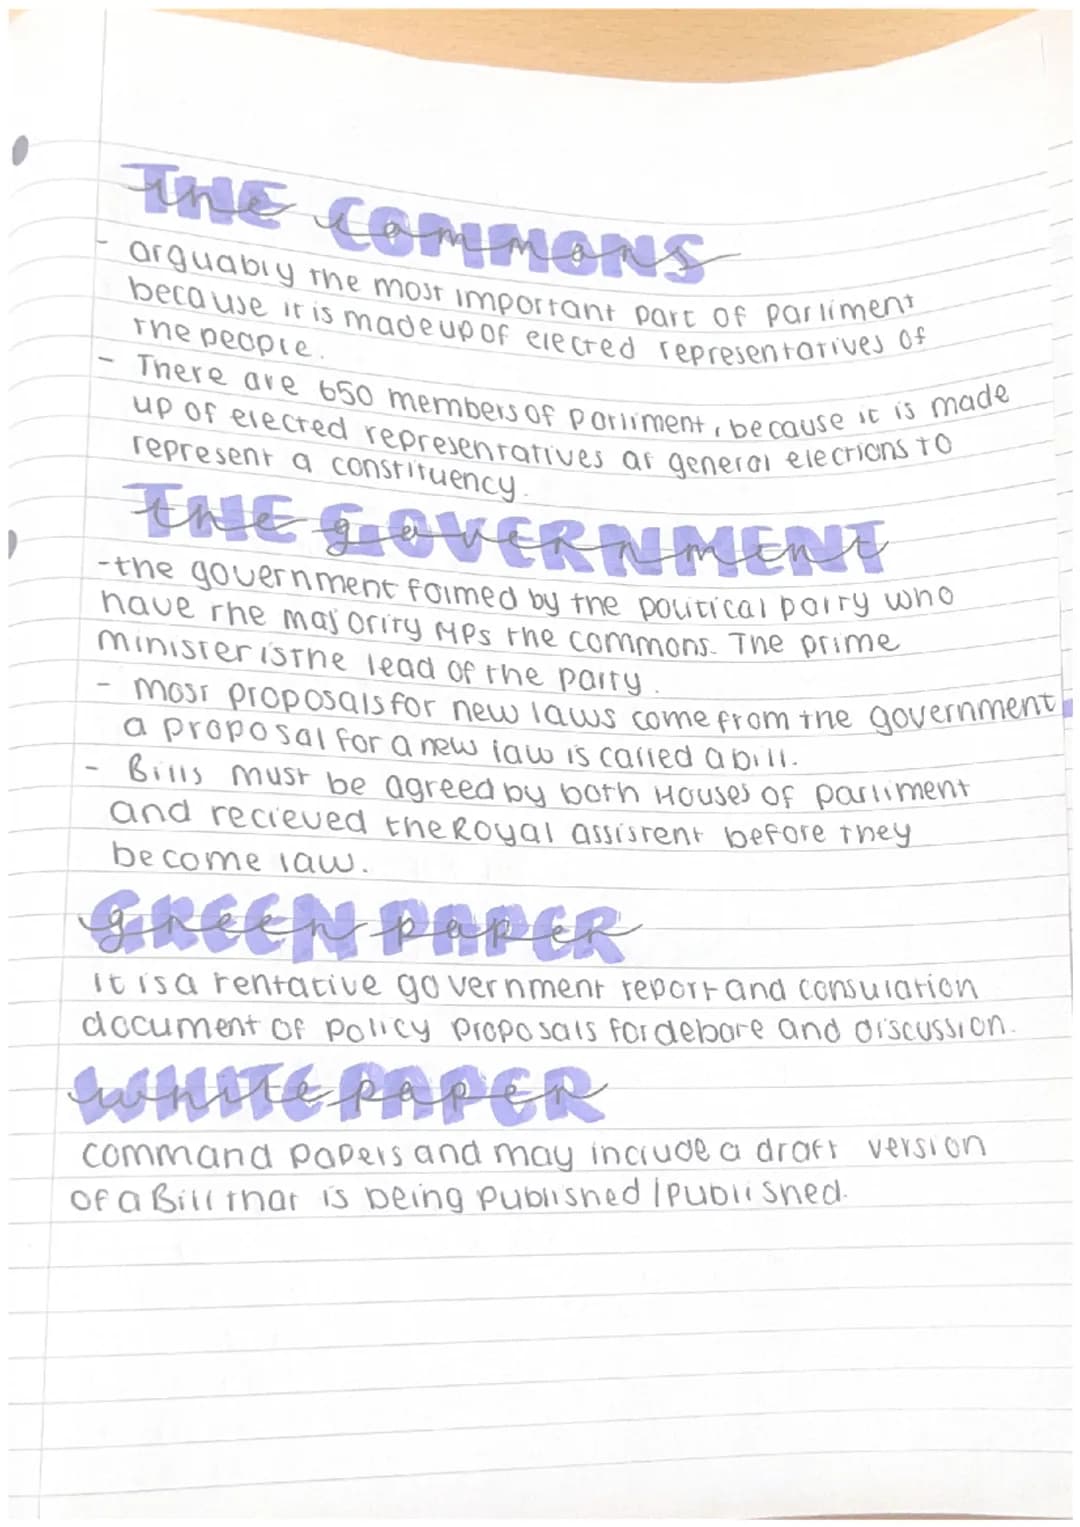 THE COMMONS
- arguably the most important part of parliment
because it is made up of elected representatives of
the people.
- There are 650 members of parliment, because it is made
up of elected representatives at general elections to
represent a constituency.
THE GOVERNMENT
- the government formed by the political party who
have the majority MPs the commons. The prime
minister is the lead of the party.
- most proposals for new laws come from the government
a proposal for a new law is called a bill.
- Bills must be agreed by both Houses of parliment
and recieved the Royal assistent before they
become law.
GREEN PAPER
it is a tentative government report and consulation
document of policy proposals for debate and discussion.
WHITE PAPER
command papers and may include a draft version
of a Bill that is being published / published.